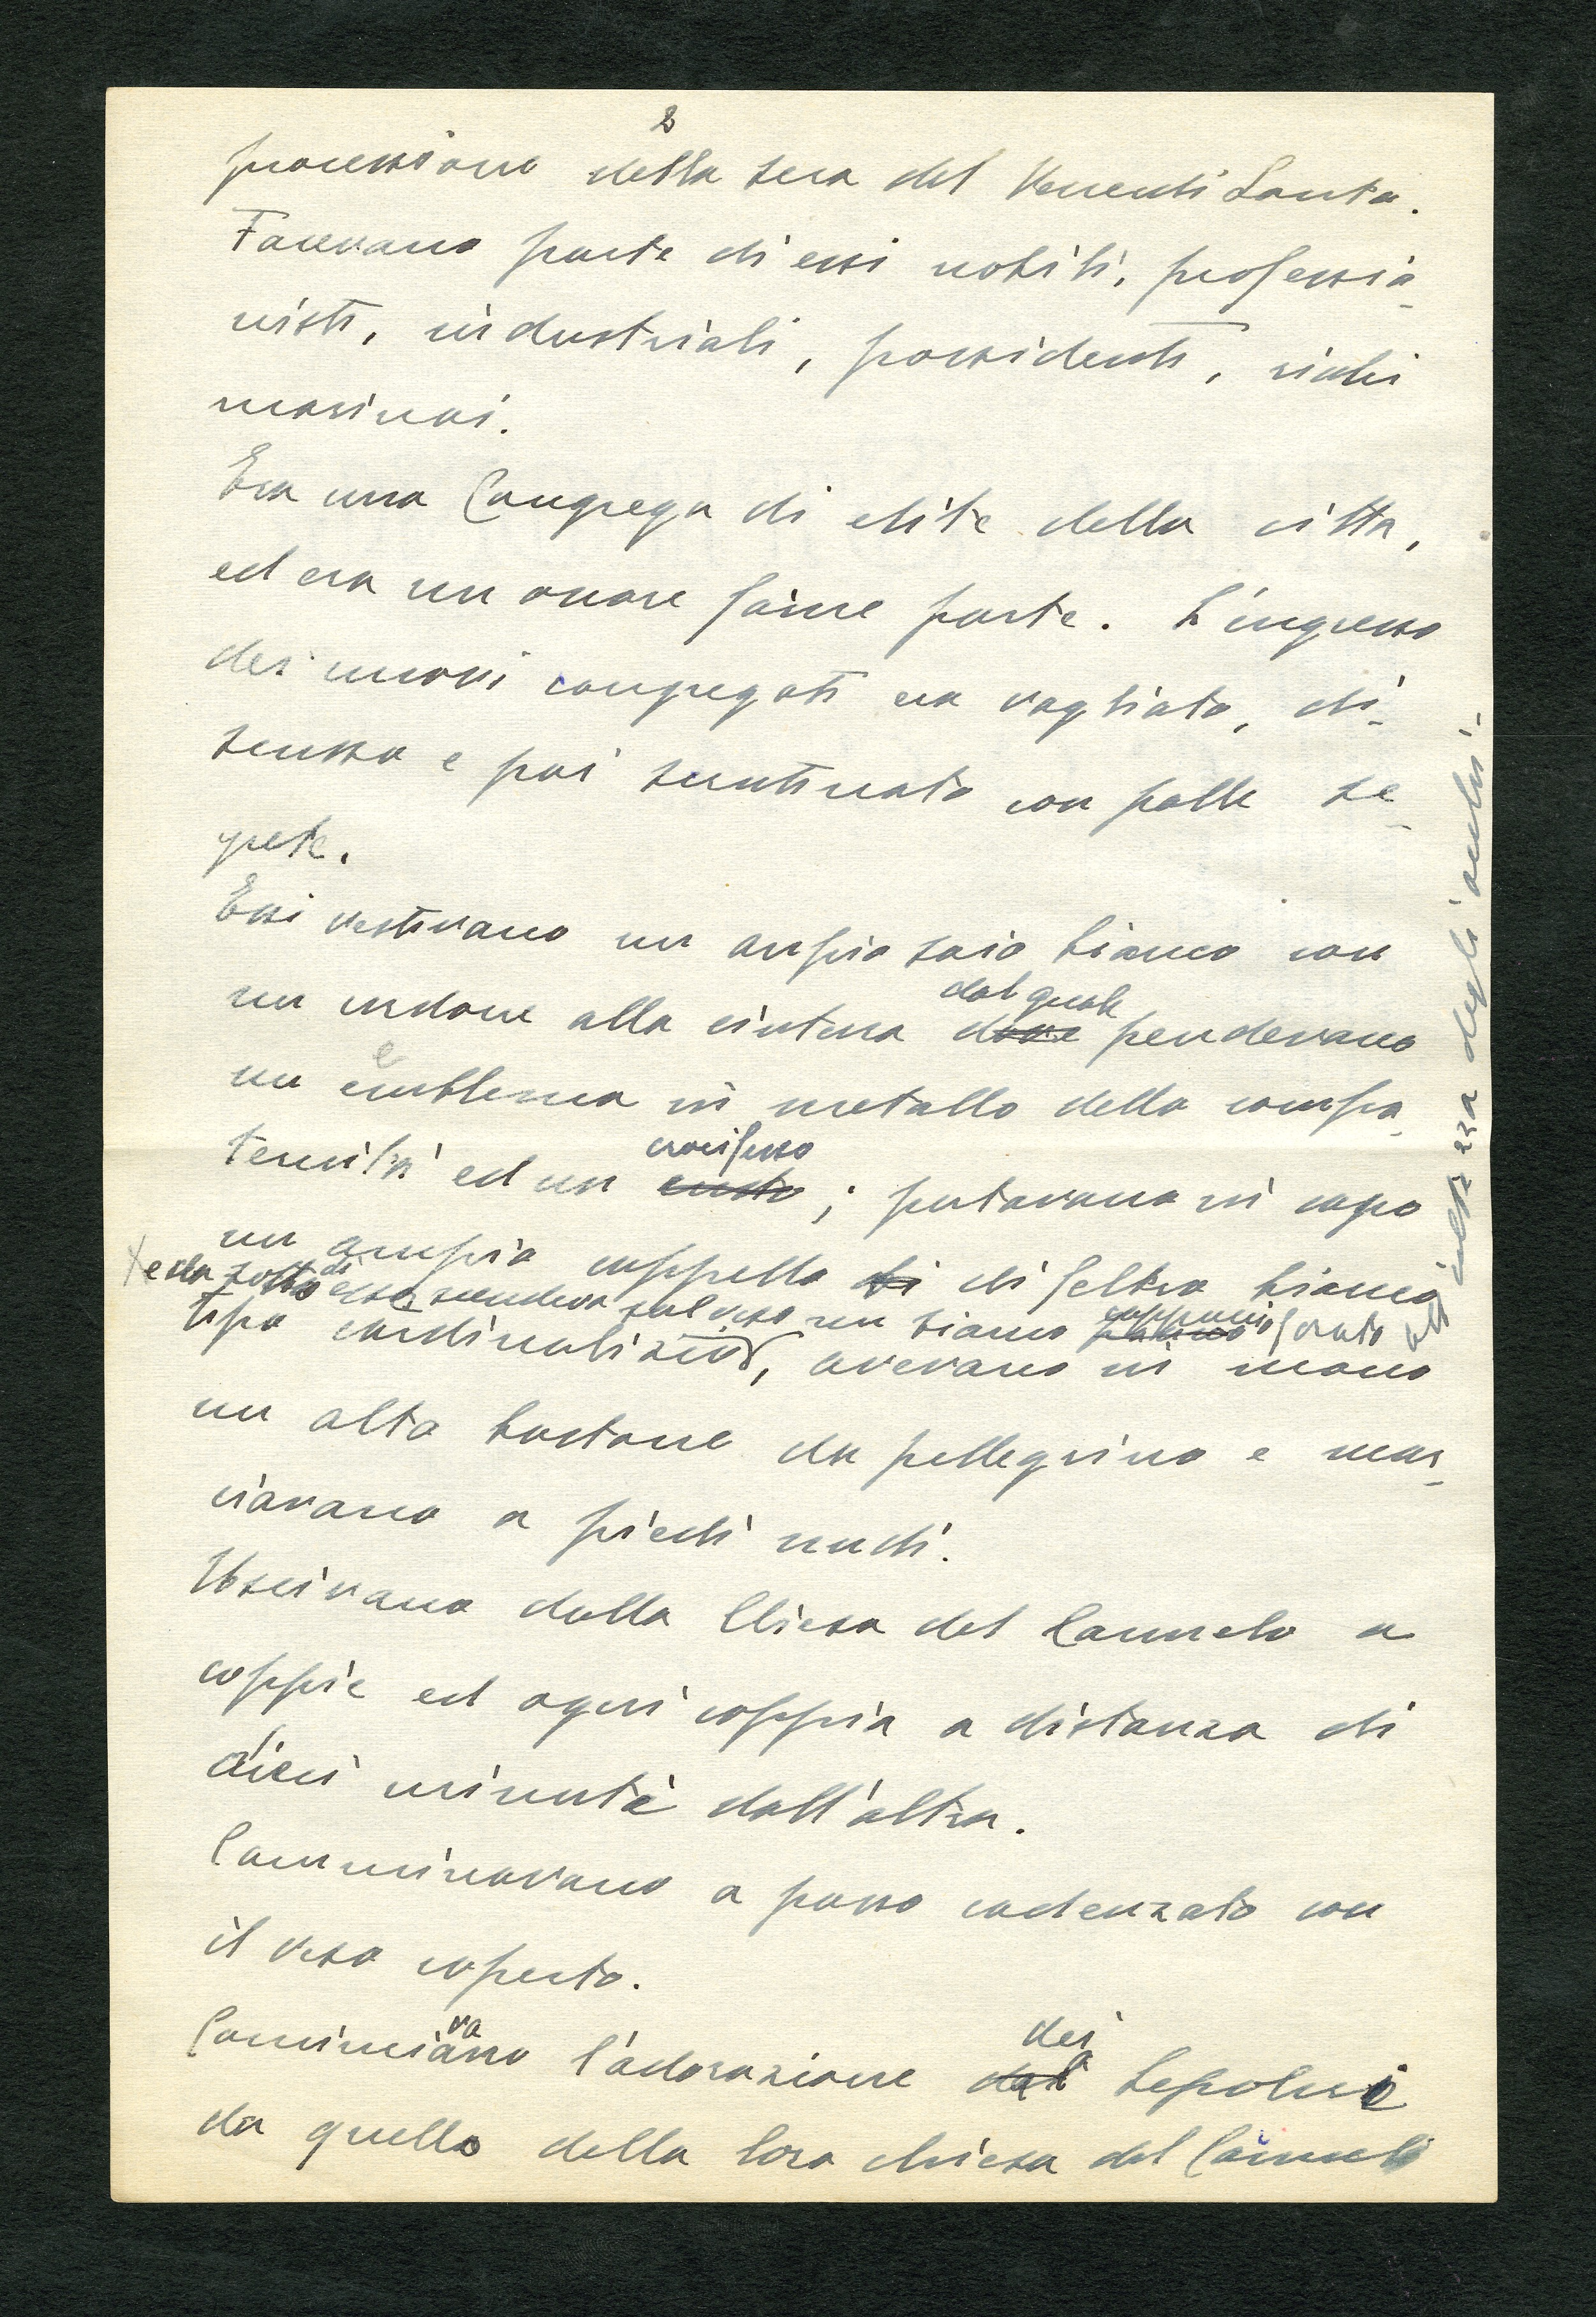 2
processione della sera del Venerdi Santo.
Facevano parte di essi nobili, professio-
nisti, industriali, possidenti, ricchi
marinai.
Era una Congrega di elite della citta,
ed era un onore farne parte. L'ingresso
dei nuovi congregati era vagliato, di-
scusso e poi scrutinato con palle se-
grete.
Essi vestivano un ampio saio bianco con
dal quale
un cordone alla cintura dove pendevano
un emblema in metallo della confra-
crocifisso
ternità ed un ; portavano in capo
un ampio cappello di di feltro bianco
+ e da sotto di esso scendeva sul viso un bianco cappuccio forato all'
altezza degli occhi.
tipo cardinalizio, avevano in mano
un alto bastone da pellegrino e mar-
ciavano a piedi nudi.
Uscivano dalla Chiesa del Carmelo a
coppie ed ogni coppia a distanza di
dieci minuti dall'altra.
Camminavano a passo cadenzato con
il viso coperto.
va dei
Cominciano l'adorazione del Sepolcri
da quello della loro chiesa del Carmelo